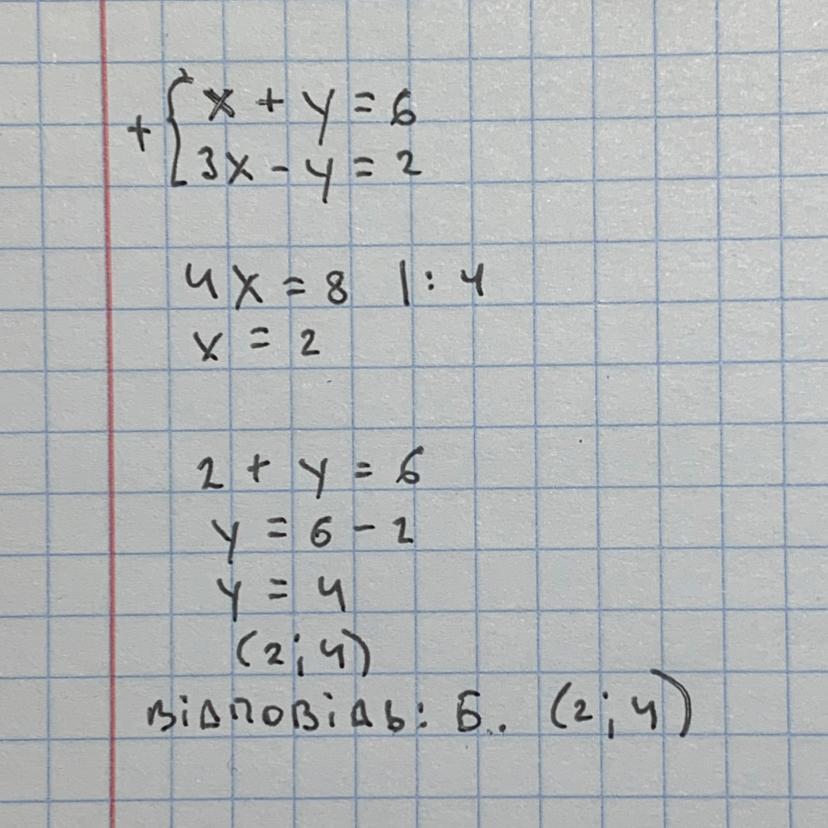 + { x + y = 6
3x - y = 2
4x = 8 |: 4
x = 2
2 + y = 6
y = 6 - 2
y = 4
(2; 4)
Відповідь: Б.. (2; 4)